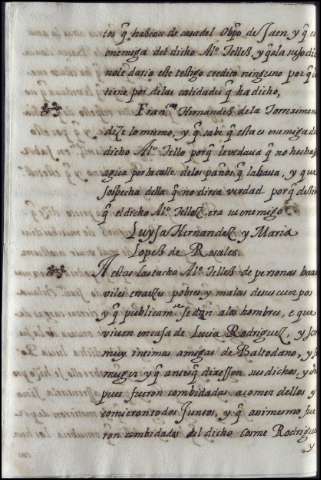 los q̃ hablaua de casa del Obpo de Jaen, y q̃ es
enemiga del dicho Alº Tellez, y q̃ a la susodic
no le daria este testigo credito ninguno por q̃ la
tiene por de las calidades q̃ ha dicho,
Franca Hernandez de la Torraxime
dize lo mismo, y q̃ sabe q̃ esta es enemiga de
dicho Alº Tello porq̃ le vedaua q̃ no hechas
agua por la calle de los paños q̃ labaua, y que
sospecha della q̃ no diria verdad, porq̃ dezia
q̃ el dicho Alº Tellez era su enemigo
Luysa Hernandez y Maria
Lopez de Rosales.
A estas las tacho Alº Tellez de personas baxas
viles, rraezes pobres y malas de sus cuerpos
y q̃ publicamte se dan a los hombres, e que
viuen en casa de Lucia Rodriguez, y son
muy intimas amigas de Baltodano, y
muger, y q̃ antes q̃ dixessen sus dichos, y des
pues fueron combidadas a comer dellos y
comieron todos Juntos, y q̃ ansi mesmo fue
ron combidadas del dicho Cosme Rodrigue
y